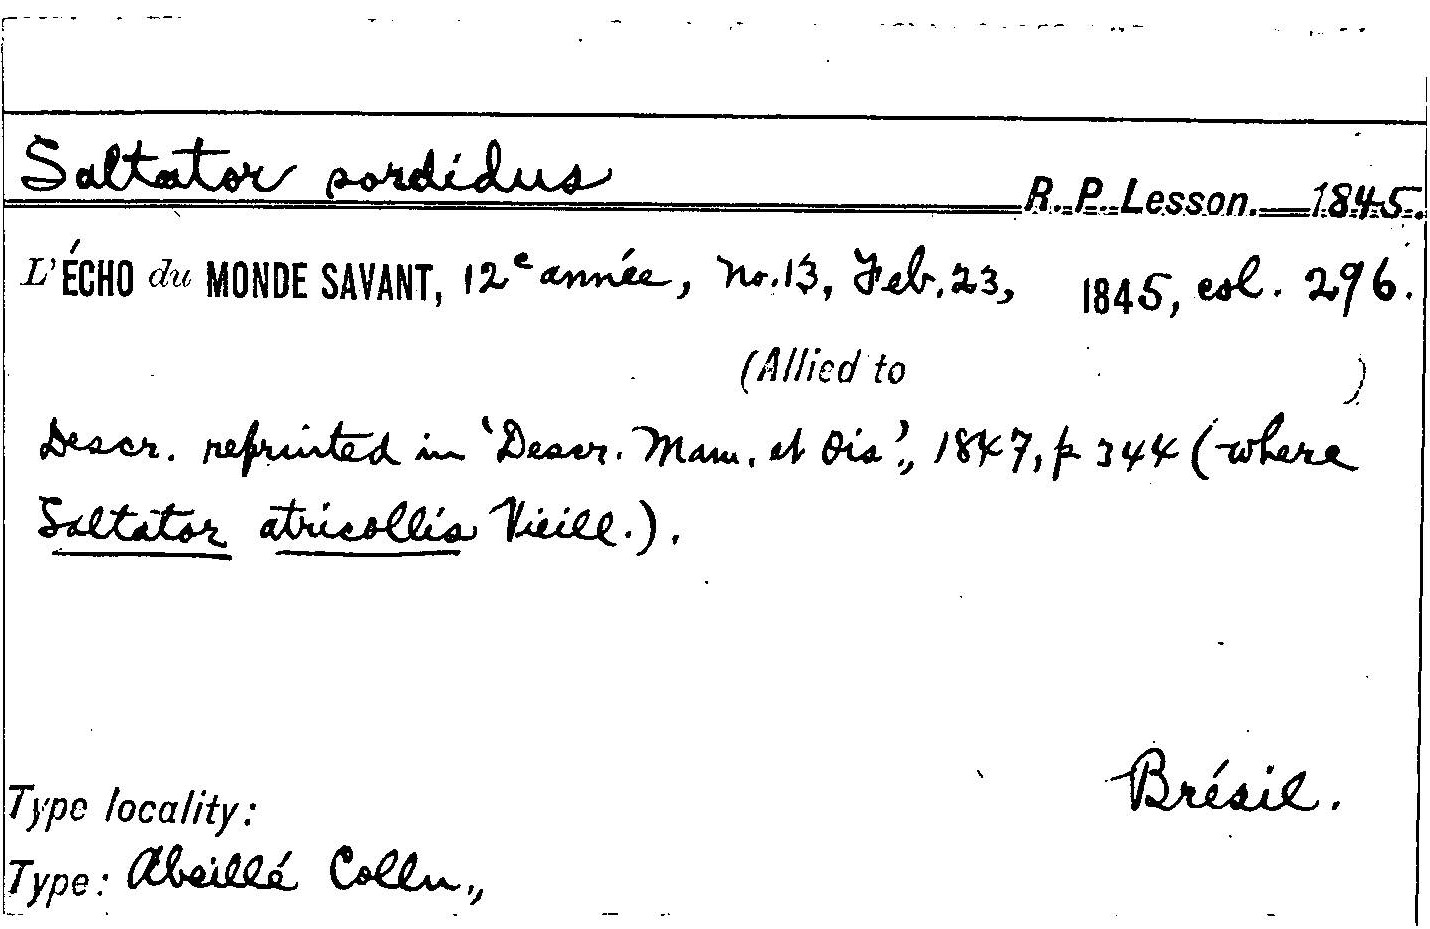 Saltator sordidus R. P. Lesson. 1845.
L'ÉCHO du MONDE SAVANT, 12e année, No. 13, Feb. 23, 1845, col. 296.
(Allied to )
Descr. reprinted in 'Descr. Mam. et Ois.', 1847, p 344 (where
Saltator atricollis Vieill.).
Brésil.
Type locality:
Type: Abeillé Colln.,